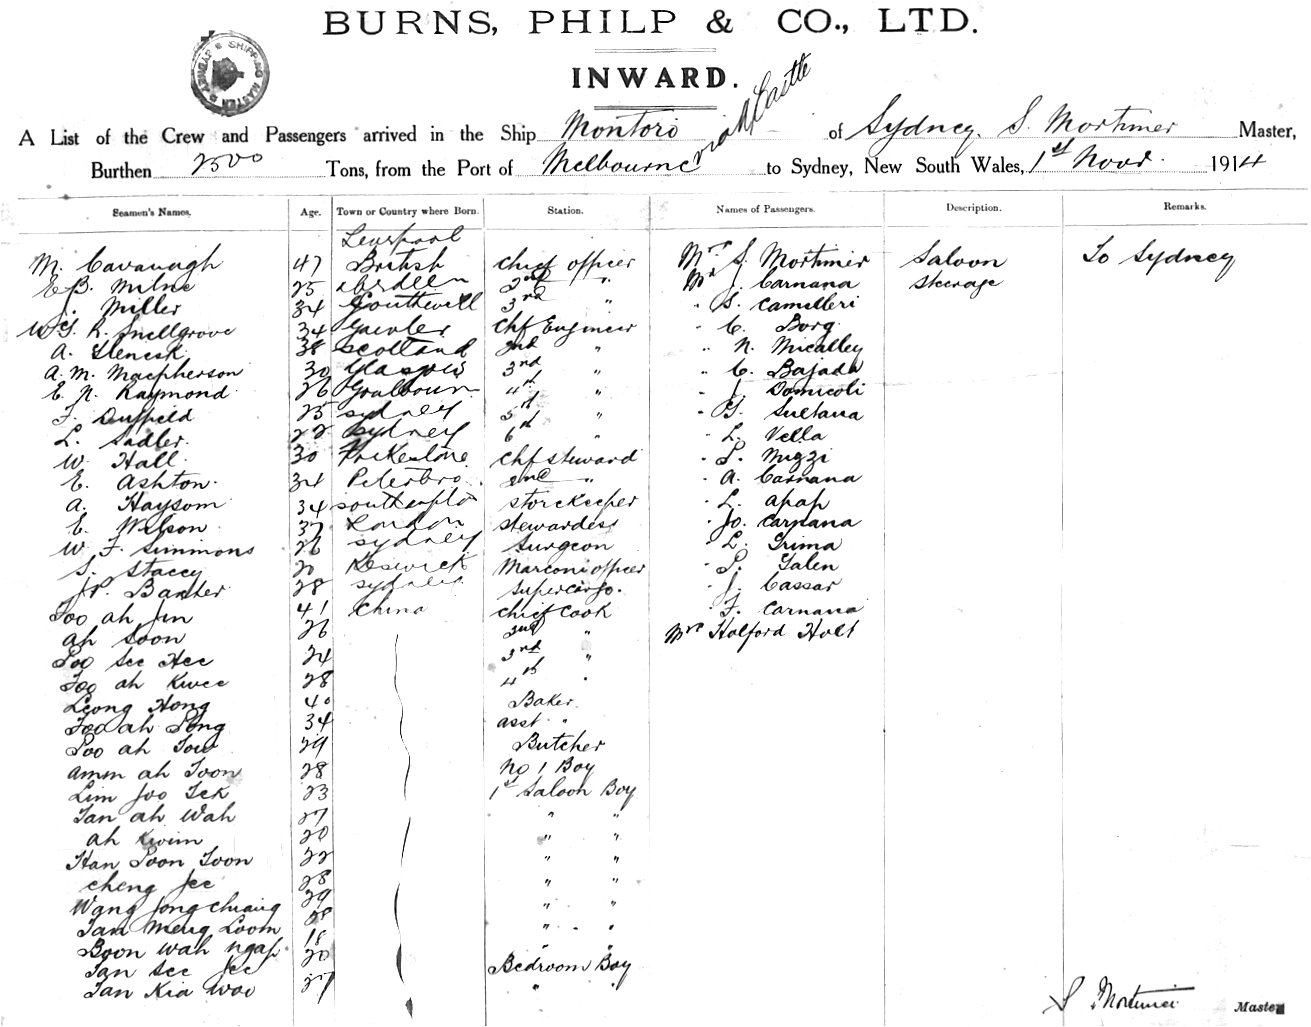 BURNS, PHILP & CO., LTD.
SHIPPING MASTER
INWARD.
A List of the Crew and Passengers arrived in the Ship Montoro of Sydney. S. Mortimer Master,
Burthen 2500 Tons, from the Port of Melbourne via N/Castle to Sydney, New South Wales, 1st Novr. 1914
Seamen's Names. Age. Town or Country where Born. Station. Names of Passengers. Description. Remarks.
Liverpool
M. Cavanagh 47 British Chief Officer Mrs S. Mortimer Saloon To Sydney
E B. Milne 25 Aberdeen 2nd " Mr J. Carnana Steerage
J. Miller 34 3rd " " S. Camilleri
W. G. R. Snellgrove 34 Gawler Chf Engineer " C. Borg
A. Glenesk 38 Scotland 2nd " " N. Micalley
A. M. Macpherson 30 Glasgow 3rd " " C. Bajada
E. N. Raymond 26 Goulbourn 4th " " J. Domicoli
F. Duffield 25 Sydney 5th " " G. Sultana
L. Sadler 22 Sydney 6th " " L. Vella
W. Hall 30 Folkestone Chf Steward " S. Muzzi
E. Ashton. 34 Peterbro. 2nd " " A. Carnana
A. Haysom 34 Southampton Storekeeper " L. Apap
E. Wilson 37 London Stewardess " Jo. Carnana
W. F. Simmons 26 Sydney Surgeon " L. Grima
S. Stacey 20 Keswick Marconi Officer " S. Galen
Jr. Banker 28 Sydney Supercargo. " J. Cassar
Foo Ah Jin 41 China Chief Cook " F. Carnana
Ah Soon 26 2nd " Mrs Holford Holt
Foo See Hee 24 3rd "
Foo Ah Kwee 28 4th "
Leong Hong 40 Baker
Foo Ah Pong 34 Asst "
Foo Ah Tow 29 Butcher
Amm Ah Toon 28 No 1 Boy
Lim Joo Tek 23 1st Saloon Boy
Tan Ah Wah 27 " "
Ah Kwim 20 " "
Han Poon Toon 22 " "
Cheng Jee 28 " "
Wang Jong Chiang 29 " "
Tam Meng Loom 28 " "
Boon Wah Ngap. 18 " "
Tan See Jee 20 Bedroom Boy
Tan Kia Woo 27 "
S. Mortimer Master